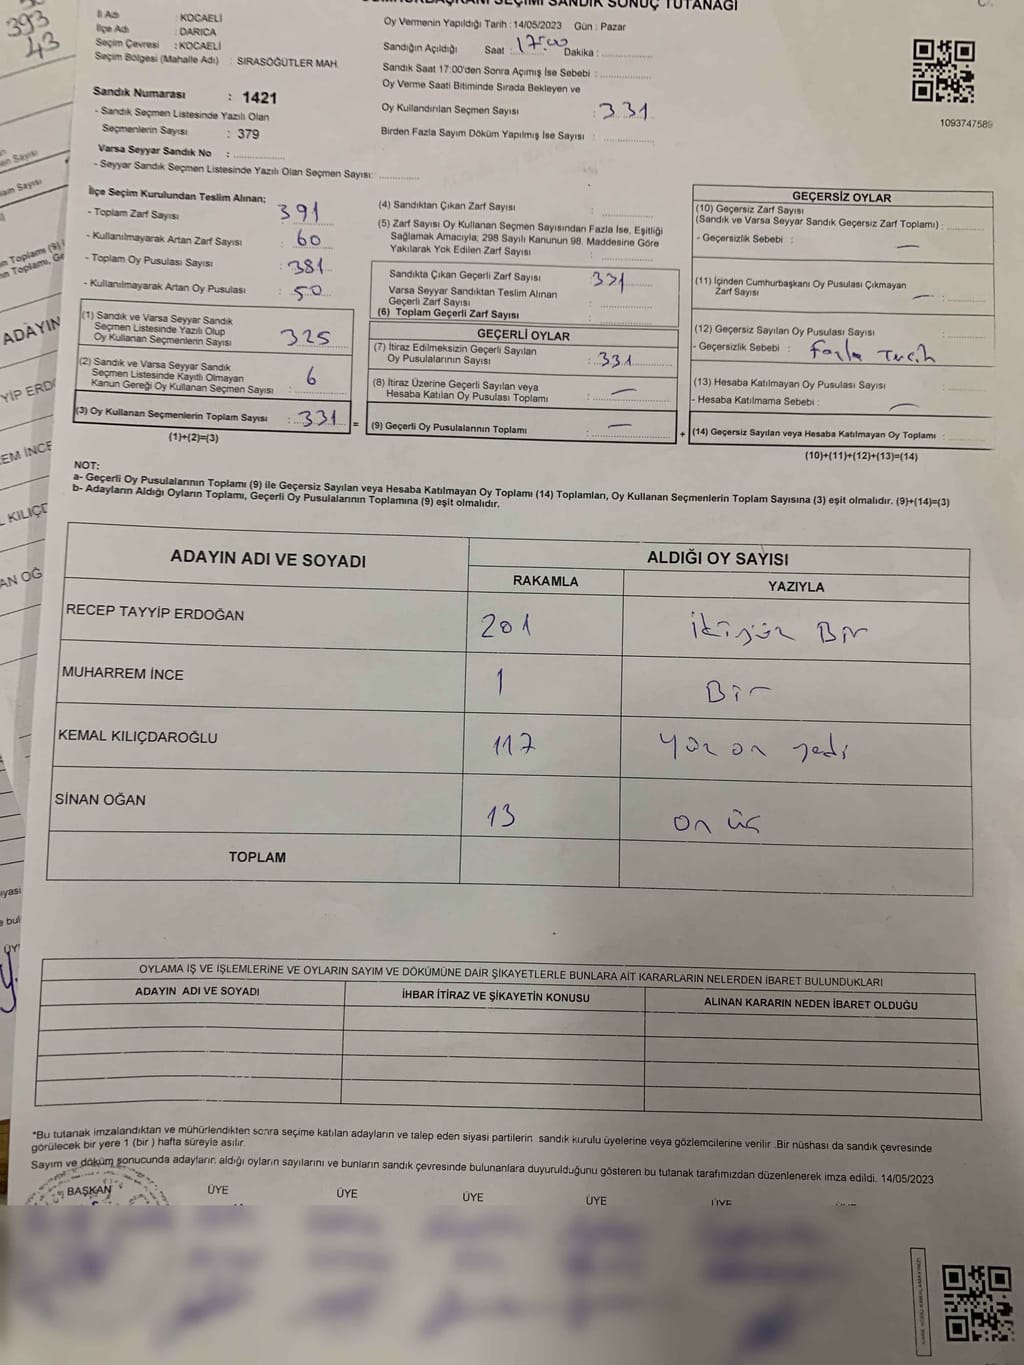 393
43
SANDIK SONUÇ TUTANAĞI
İl Adı : KOCAELİ
İlçe Adı : DARICA
Seçim Çevresi : KOCAELİ
Seçim Bölgesi (Mahalle Adı) : SIRASÖĞÜTLER MAH.
Sandık Numarası : 1421
- Sandık Seçmen Listesinde Yazılı Olan
Seçmenlerin Sayısı : 379
Varsa Seyyar Sandık No :
- Seyyar Sandık Seçmen Listesinde Yazılı Olan Seçmen Sayısı:
Oy Vermenin Yapıldığı Tarih : 14/05/2023 Gün : Pazar
Sandığın Açıldığı Saat : 17:00 Dakika :
Sandık Saat 17:00'den Sonra Açımış İse Sebebi :
Oy Verme Saati Bitiminde Sırada Bekleyen ve
Oy Kullandırılan Seçmen Sayısı : 331
Birden Fazla Sayım Döküm Yapılmış İse Sayısı :
1093747589
İlçe Seçim Kurulundan Teslim Alınan;
- Toplam Zarf Sayısı : 391
- Kullanılmayarak Artan Zarf Sayısı : 60
- Toplam Oy Pusulası Sayısı : 381
- Kullanılmayarak Artan Oy Pusulası : 50
(1) Sandık ve Varsa Seyyar Sandık
Seçmen Listesinde Yazılı Olup
Oy Kullanan Seçmenlerin Sayısı : 325
(2) Sandık ve Varsa Seyyar Sandık
Seçmen Listesinde Kayıtlı Olmayan
Kanun Gereği Oy Kullanan Seçmen Sayısı : 6
(3) Oy Kullanan Seçmenlerin Toplam Sayısı : 331 =
(1)+(2)=(3)
(4) Sandıktan Çıkan Zarf Sayısı :
(5) Zarf Sayısı Oy Kullanan Seçmen Sayısından Fazla İse, Eşitliği
Sağlamak Amacıyla; 298 Sayılı Kanunun 98. Maddesine Göre
Yakılarak Yok Edilen Zarf Sayısı :
Sandıkta Çıkan Geçerli Zarf Sayısı : 331
Varsa Seyyar Sandıktan Teslim Alınan
Geçerli Zarf Sayısı :
(6) Toplam Geçerli Zarf Sayısı :
GEÇERLİ OYLAR
(7) İtiraz Edilmeksizin Geçerli Sayılan
Oy Pusulalarının Sayısı : 331
(8) İtiraz Üzerine Geçerli Sayılan veya
Hesaba Katılan Oy Pusulası Toplamı : —
(9) Geçerli Oy Pusulalarının Toplamı : — +
GEÇERSİZ OYLAR
(10) Geçersiz Zarf Sayısı
(Sandık ve Varsa Seyyar Sandık Geçersiz Zarf Toplamı) :
- Geçersizlik Sebebi : —
(11) İçinden Cumhurbaşkanı Oy Pusulası Çıkmayan
Zarf Sayısı — :
(12) Geçersiz Sayılan Oy Pusulası Sayısı :
- Geçersizlik Sebebi : Fazla Tercih
(13) Hesaba Katılmayan Oy Pusulası Sayısı :
- Hesaba Katılmama Sebebi : —
(14) Geçersiz Sayılan veya Hesaba Katılmayan Oy Toplamı :
(10)+(11)+(12)+(13)=(14)
NOT:
a- Geçerli Oy Pusulalarının Toplamı (9) ile Geçersiz Sayılan veya Hesaba Katılmayan Oy Toplamı (14) Toplamları, Oy Kullanan Seçmenlerin Toplam Sayısına (3) eşit olmalıdır. (9)+(14)=(3)
b- Adayların Aldığı Oyların Toplamı, Geçerli Oy Pusulalarının Toplamına (9) eşit olmalıdır.
ADAYIN ADI VE SOYADI
ALDIĞI OY SAYISI
RAKAMLA YAZIYLA
RECEP TAYYİP ERDOĞAN 201 ikiyüz Bir
MUHARREM İNCE 1 Bir
KEMAL KILIÇDAROĞLU 117 yüz on yedi
SİNAN OĞAN 13 on üç
TOPLAM
OYLAMA İŞ VE İŞLEMLERİNE VE OYLARIN SAYIM VE DÖKÜMÜNE DAİR ŞİKAYETLERLE BUNLARA AİT KARARLARIN NELERDEN İBARET BULUNDUKLARI
ADAYIN ADI VE SOYADI İHBAR İTİRAZ VE ŞİKAYETİN KONUSU ALINAN KARARIN NEDEN İBARET OLDUĞU
*Bu tutanak imzalandıktan ve mühürlendikten sonra seçime katılan adayların ve talep eden siyasi partilerin sandık kurulu üyelerine veya gözlemcilerine verilir .Bir nüshası da sandık çevresinde
görülecek bir yere 1 (bir ) hafta süreyle asılır.
Sayım ve döküm sonucunda adayların aldığı oyların sayılarını ve bunların sandık çevresinde bulunanlara duyurulduğunu gösteren bu tutanak tarafımızdan düzenlenerek imza edildi. 14/05/2023
BAŞKAN ÜYE ÜYE ÜYE ÜYE ÜYE